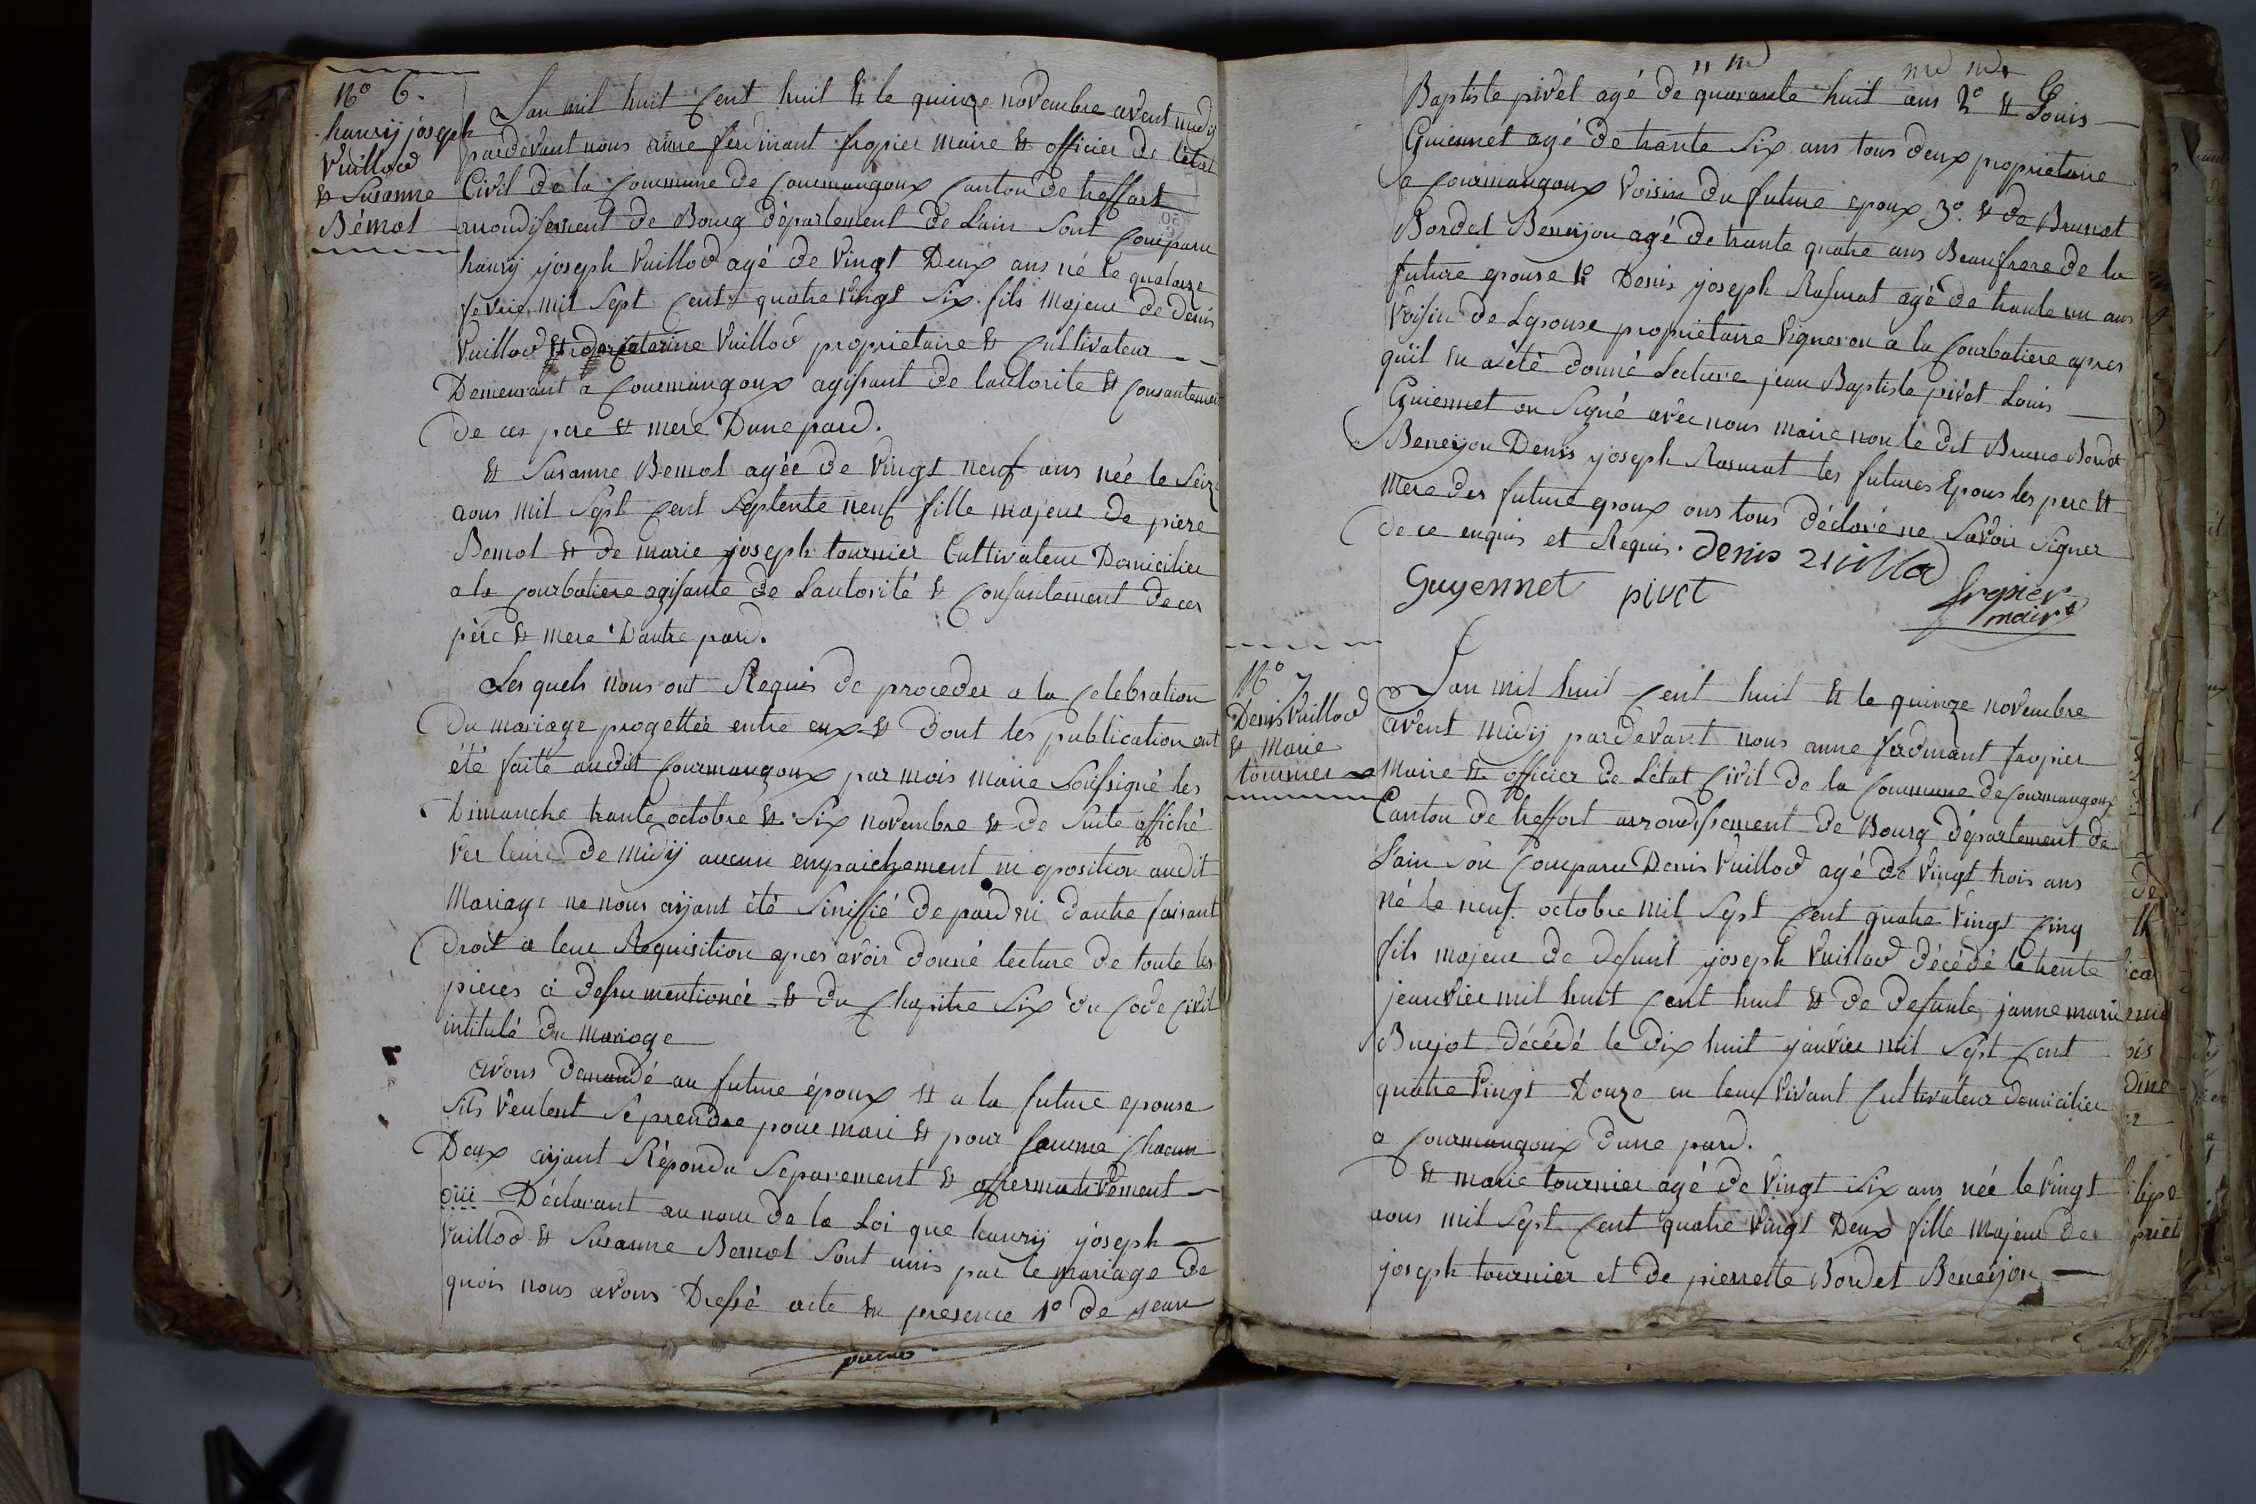 N° 6.
hanrij joseph
Vuillod
et Susanne
Bémot
Lan mil huit Cent huit et le quinze novembre avent midij
pardevant nous anne ferdinant fropier maire et officier de letat
Civil de la Commune de Courmangoux Canton de treffort
arrondisement de Bourg département de Lain Sont Comparu
hanrij joseph Vuillod agé de Vingt Deux ans né le quatorze
fevrie mil Sept Cent quatre Vingt Six fils Majeur de denis
Vuillod et de Catarine Vuillod proprietaire et Cultivateur
Demeurant a Courmangoux agissant de lautorite et Consantement
de ces pere et mere Dune pard.
et Susanne Bemot agée de Vingt neuf ans née le Seize
aous mil Sept Cent Septente neuf fille majeur de piere
Bemot et de marie joseph tournier Cultivateur Domicilier
a la Courbatiere agisante de Lautorité et Consantement de ces
père et mere Dautre pard.
Les quels nous ont Requis de proceder a la Celebration
du mariage progettée entre eux et dont les publication ont
été faite audit Courmangoux par mois maire Soussigné les
Dimanche trante octobre et Six novembre et de Suite affiché
Ver leure de midij aucun enpaichement ni oposition audit
Mariage ne nous aijant été Sinifié de pard ni dautre faisant
droit a leur Requisition apres avoir donné lecture de toute les
pieces ci desu mentionée et du Chapitre Six du Code Civil
intitulé du mariage
avons demandé au future époux et a la future epouse
Sils Veulent Se prendre pour mari et pour famme Chacun
Deux aijant Répondu Separement et affermativement
oui Déclarant au nom de la Loi que hanrij joseph
Vuillod et Susanne Bemot Sont unis par le mariage de
quois nous avons Dressé acte en presence 1° de jean
Baptiste pivet agé de quarante huit ans 2° et Louis
Guiennet agé de trante Six ans tous deux proprietaire
a Courmangoux Voisin du future epoux 3° et de Brunot
Bordet Beneijon agé de trante quatre ans Beaufrere de la
future epouse et Denis joseph Rasurat agé de trante un ans
Voisin de Lepouse proprietaire Vigneron a la Courbatiere apres
quil en a été donné Lecture jean Baptiste pivet Louis
Guiennet on Signé avec nous maire non le dit Bruno Bordet
Beneijon Denis joseph Rasurat les futures Epous les pere et
mere des future epoux ons tous déclaré ne Savoir Signer
de ce enquis et Requis. Denis
Guyennet pivet fropier
maire
N° 7
Denis Vuillod
et Marie
tournier
Lan mil huit Cent huit et le quinze novembre
avent midij pardevant nous anne ferdinant fropier
Maire et officier de Letat Civil de la Commune de Courmangoux
Canton de treffort arrondissement de Bourg département de
Lain Son Comparu Denis Vuillod agé de Vingt trois ans
né le neuf octobre mil Sept Cent quatre Vingt Cinq
fils majeur de defunt joseph Vuillod décédé le trente
jeanvier mil huit Cent huit et de defunte janne marie
Buijot décédé le dix huit janvier mil Sept Cent
quatre Vingt Douze en leur Vivant Cultivateur domicilier
a Courmangoux dune pard.
et marie tournier agé de Vingt Six ans née le Vingt
aous mil Sept Cent quatre Vingt Deux fille Majeur de
joseph tournier et de pierrette Bordet Beneijon